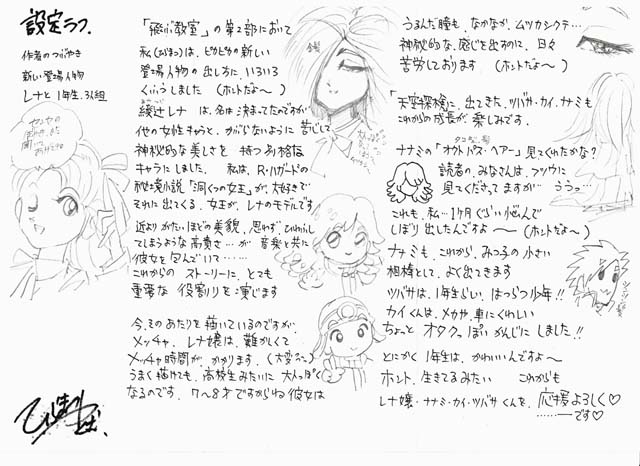 設定ラフ.
作者のつぶやき
新しい登場人物
レナと1年生.3人組
「飛ぶ教室」の第2部において
私(ひじまつ)は、ピカピカの新しい
登場人物の出し方に、いろいろ
くふうしました (ホントだよ〜)
綾辻レナ は、名は決まってたのですが
他の女性キャラと、かぶらないように 苦心して
神秘的な美しさを 持つ 別格な
キャラにしました. 私は、R・ハガードの
秘境小説「洞くつの女王」が、大好きで
それに出てくる、女王が、レナのモデルです
近よりがたいほどの美貌、思わず、ひれふし
てしまうような高貴さ…が 音楽と共に
彼女を包んでいて……
これからの ストーリーに、とても
重要な 役割りを演じます
今、そのあたりを描いているのですが、
メッチャ、レナ嬢は、難かしくて
メッチャ時間が かかります.(大変〜)
うまく描けても、高校生みたいに 大人っぽく
なるのです. 7〜8才ですからね 彼女は
うるんだ瞳も、なかなか、ムツカシクテ…
神秘的な、感じを出すのに、日々
苦労しております (ホントだよ〜)
「天空探検に、出てきた、ツバサ・カイ・ナミも
これからの成長が、楽しみです.
ナミの「オクトパス・ヘアー」見てくれたかな?
読者の、みなさんは、フツウに
見てくださってますが… ううっ…
これも、私…1ケ月ぐらい悩んで
しぼり出したんですよ 〜 (ホントだよ〜)
ナミも、これから、みつ子の小さい
相棒として、よく出てきます
ツバサは、1年生らしい、はつらつ少年!!
カイくんは、メカや、車にくわしい
ちょっと オタクっぽいかんじに しました!!
とにかく 1年生は、かわいいんですよ〜
ホント、生きてるみたい これからも
レナ嬢・ナミ・カイ・ツバサくんを、応援よろしく♡
……ーです♡